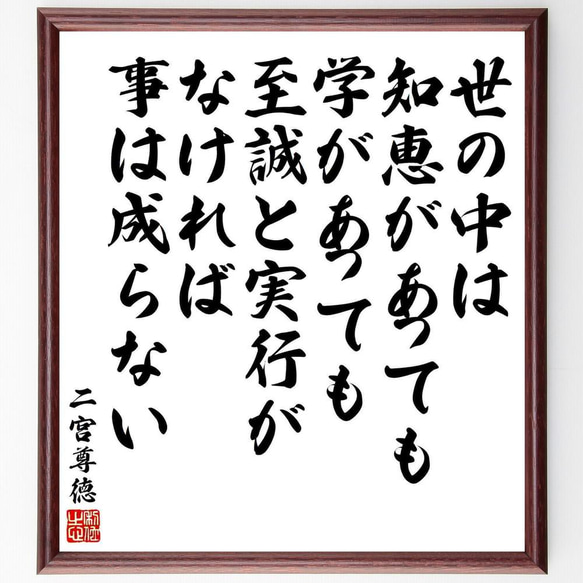 世の中は
知恵があっても
学があっても
至誠と実行が
なければ
事は成らない
二宮尊徳